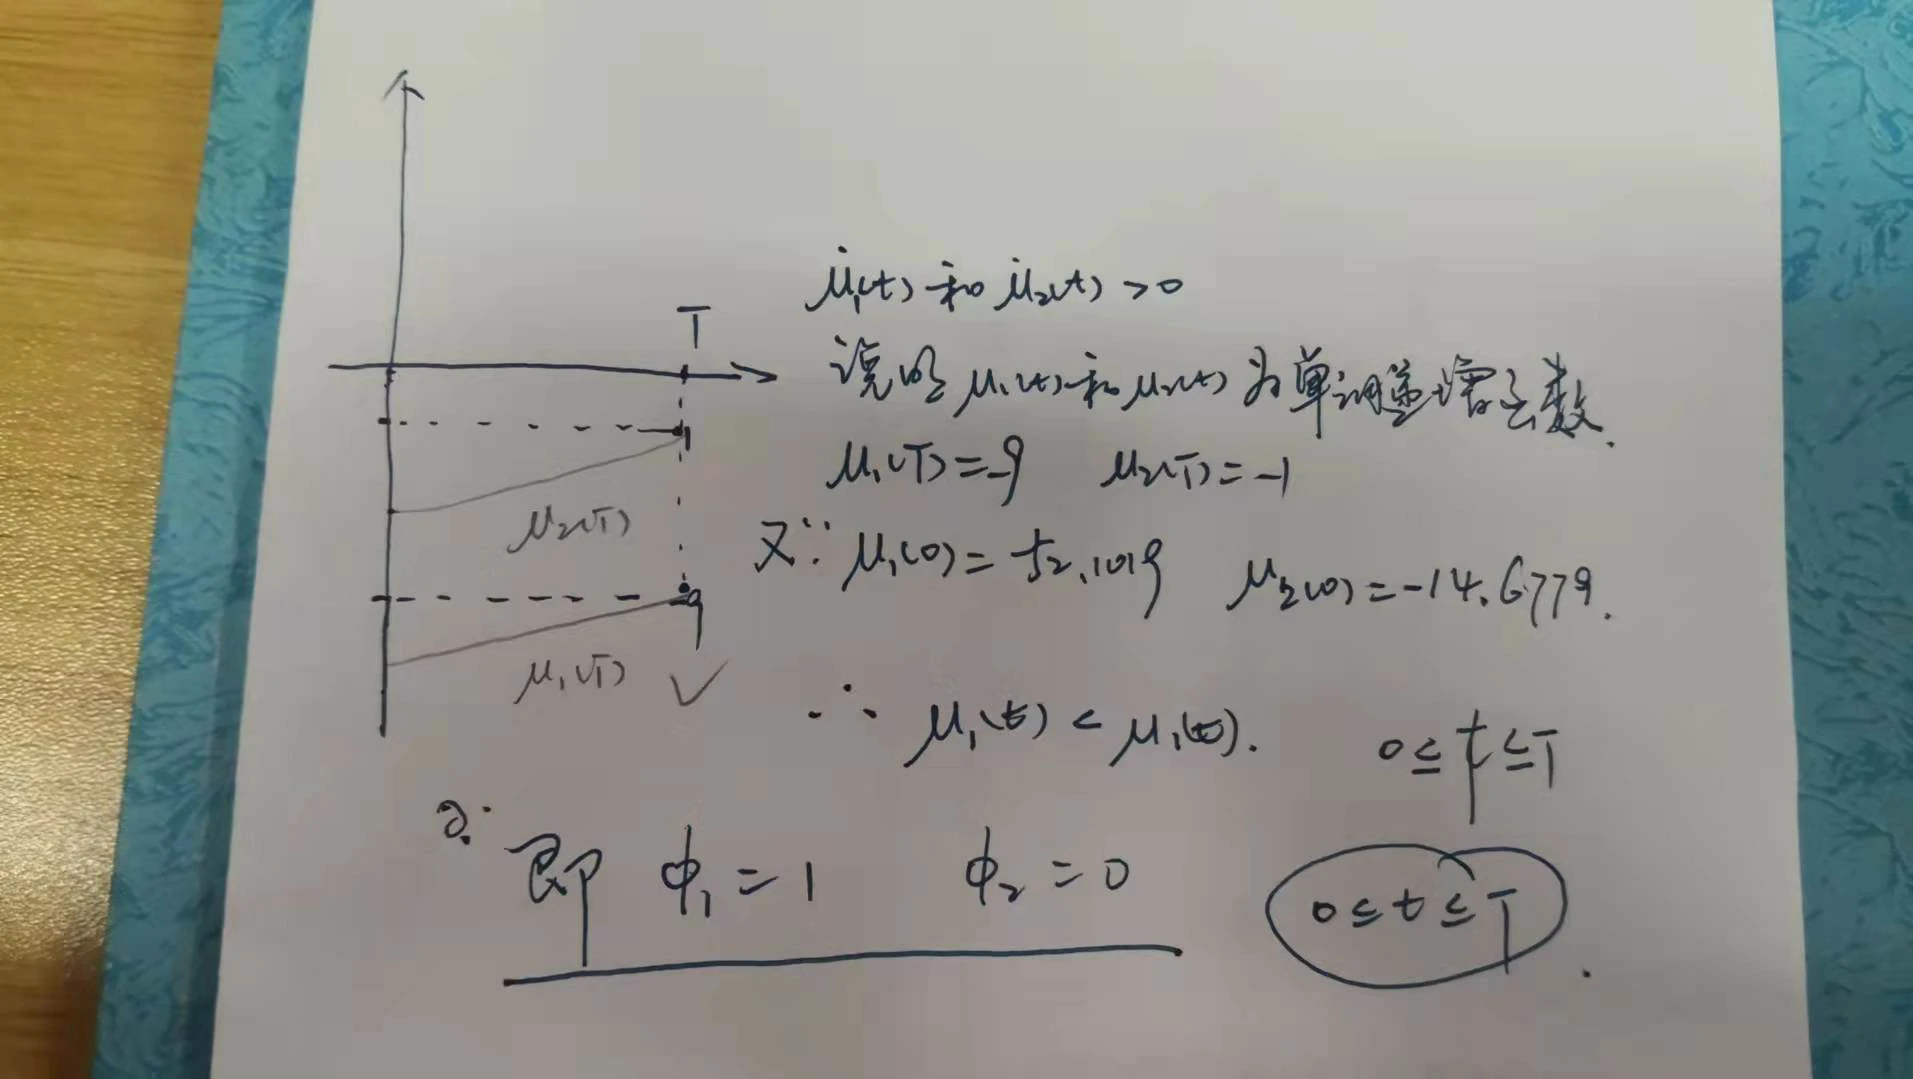 μ̇₁(t) 和 μ̇₂(t) > 0
T
说明 μ₁(t) 和 μ₂(t) 为单调递增函数.
-1
μ₁(T) = -9 μ₂(T) = -1
μ₂(T)
又∵ μ₁(0) = -52.1019 μ₂(0) = -14.6779.
-9
μ₁(T) ✓
∴ μ₁(t) < μ₁(t). 0 ≤ t ≤ T
即 ϕ₁ = 1 ϕ₂ = 0 0 ≤ t ≤ T.